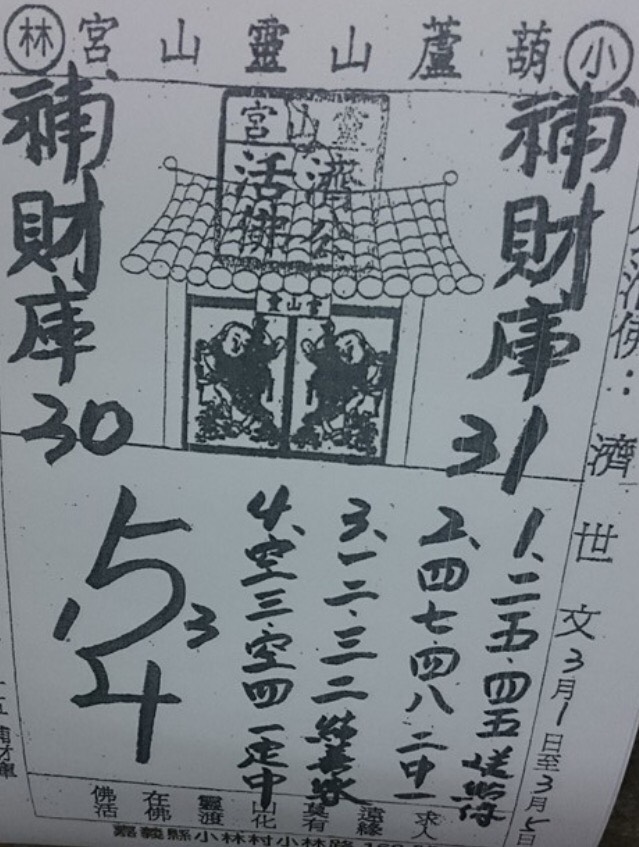 小 葫蘆山靈山宮 林
靈山宮
濟公
活佛
靈山宮
補財庫
31
補財庫
30
活佛：濟世文3月1日至3月5日
1、二五.四五
2、四七.四八二中一
3、一二.三二慈善家
4、空三.空四一定中
5
1 3
4
求人
遠緣
莫有
山化
靈渡
在佛
佛活
補財庫
嘉義縣小林村小林路